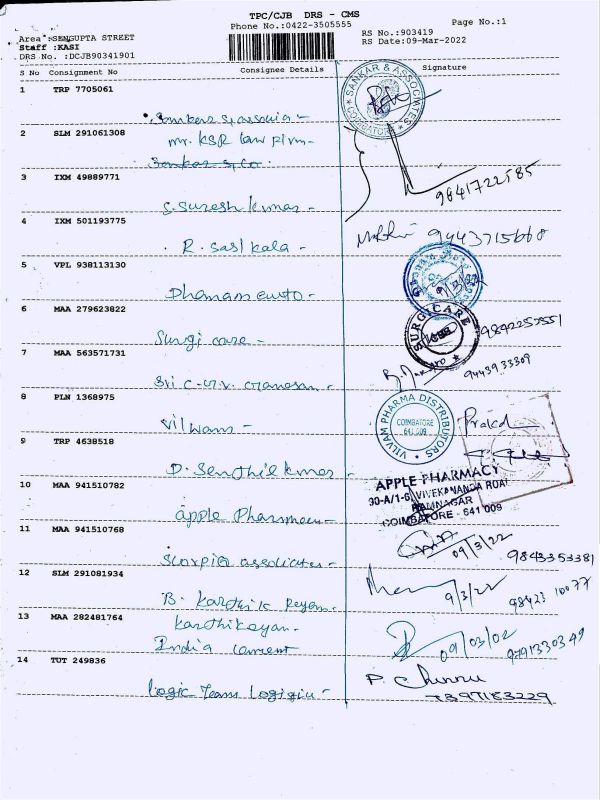 TPC/CJB DRS - CMS
Phone No.:0422-3505555
Page No.:1
Area :SENGUPTA STREET
Staff :KASI
DRS No. :DCJB90341901
RS No.:903419
RS Date:09-Mar-2022
S No Consignment No Consignee Details Signature
1 TRP 7705061
SANKAR & ASSOCIATES
COIMBATORE
2 SLM 291061308
mr. KSR law firm-
Sankar & co.
3 IXM 49889771
9841722585
S. Suresh kumar -
4 IXM 501193775
9443715668
R. Sasikala -
5 VPL 938113130
9/3/22
Dhanam
6 MAA 279623822
SURGICARE
Surgi care -
7 MAA 563571731
Sri C.
8 PLN 1368975
VILVAM PHARMA DISTRIBUTORS
COIMBATORE
641 009
Vilvam -
9 TRP 4638518
D. Senthil kumar -
10 MAA 941510782
APPLE PHARMACY
30-A/1-6, VIVEKANANDA ROAD
RAMNAGAR
COIMBATORE - 641 009
apple Pharmacy
11 MAA 941510768
09/3/22
9843353381
Scorpio associates -
12 SLM 291081934
9/3/22
98423 10077
B. Karthik
13 MAA 282481764
Karthikeyan -
India cement
09/03/02
9791330349
14 TUT 249836
P. Chinnu
7397183229
Logic Team